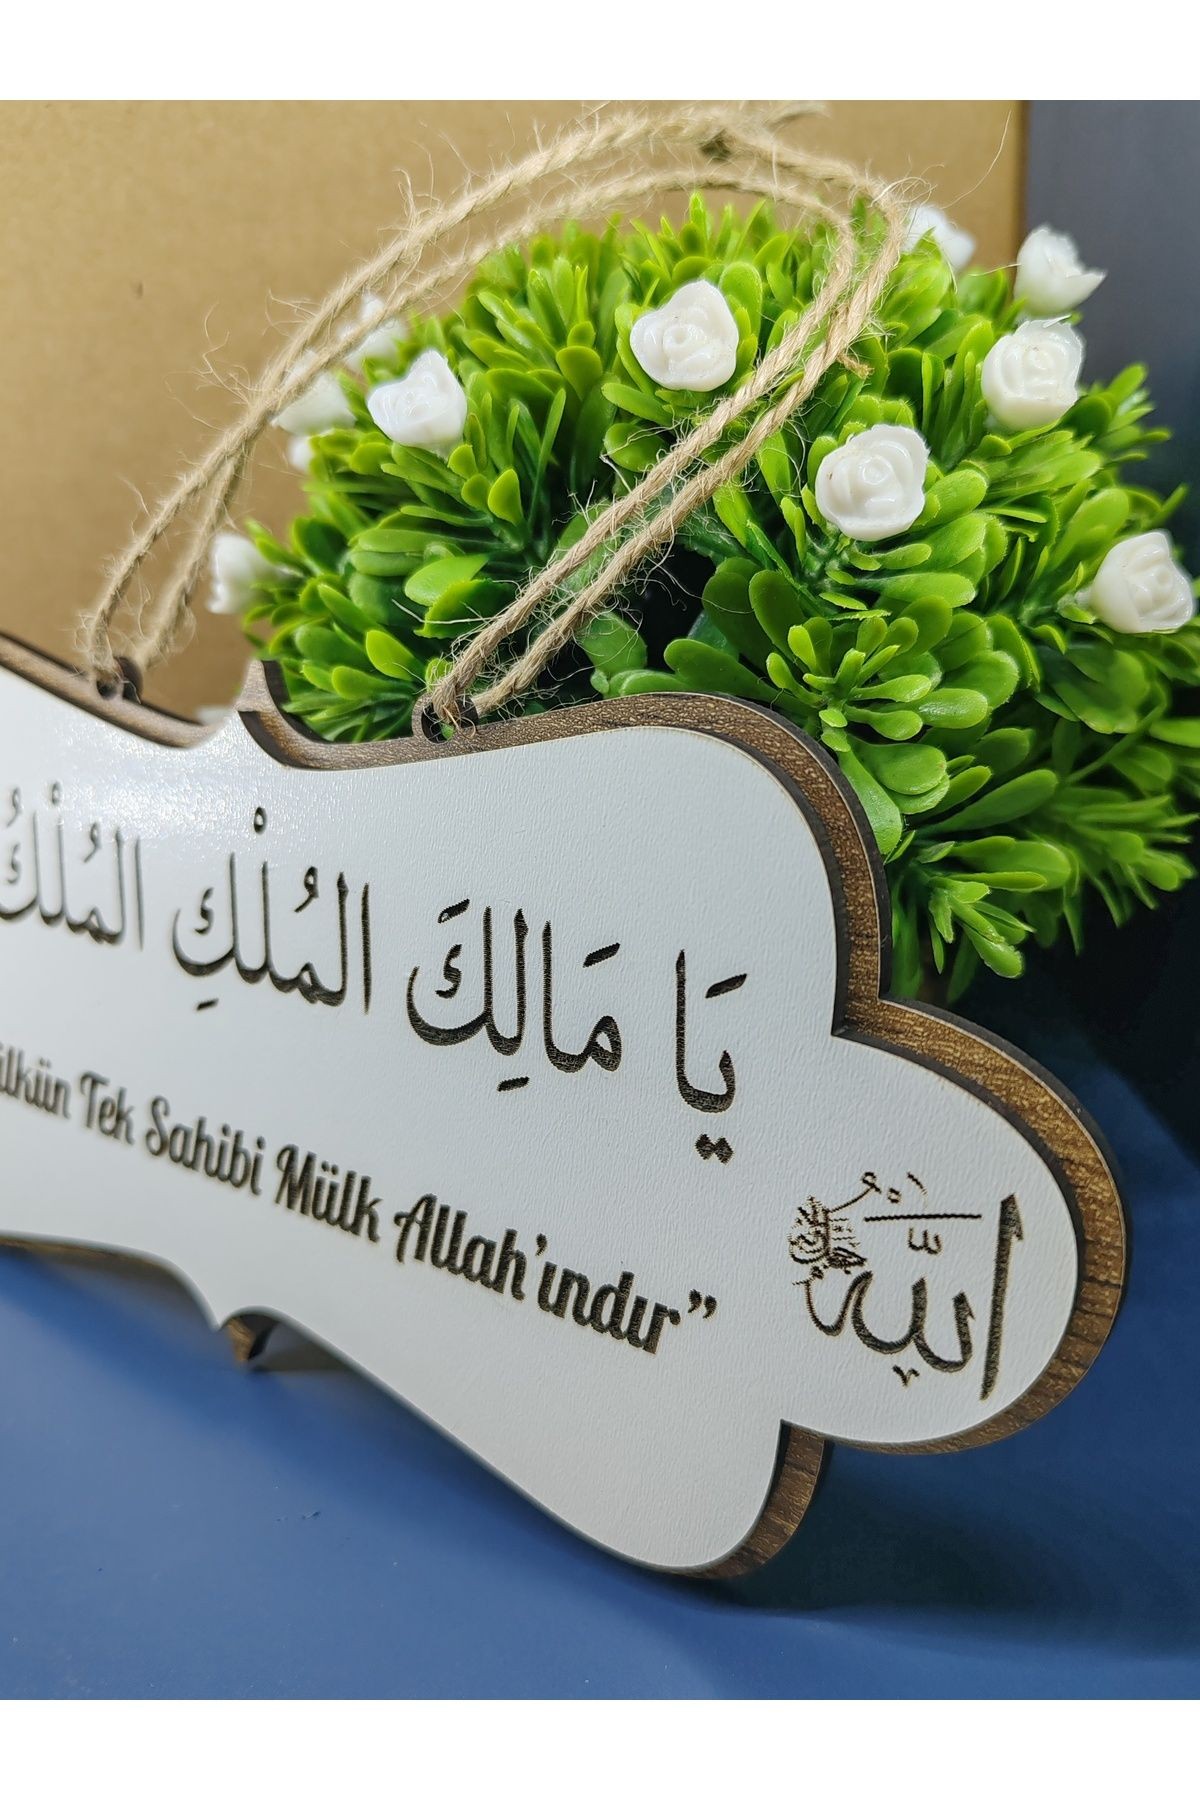 يَا مَالِكَ المُلْكِ المُلْكُ
Tek Sahibi Mülk Allah'ındır”
الله